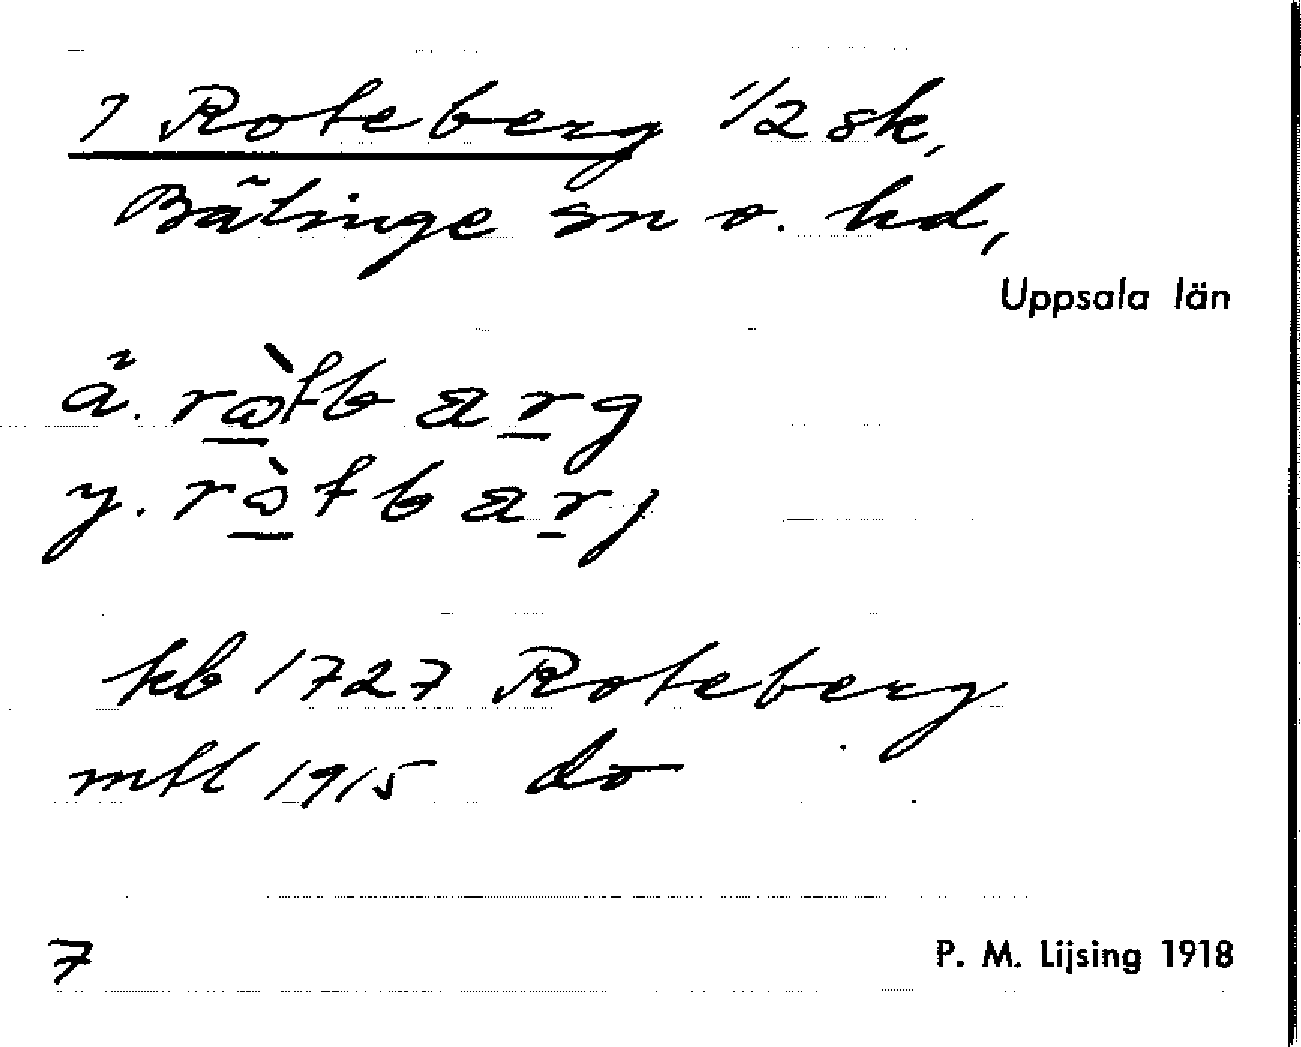 1 Roteberg 1/2 sk,
Bälinge sn o. hd,
Uppsala län
ä. ròtbarg
y. ròtbarj
kb 1727 Roteberg
mtl 1915 do
7
P. M. Lijsing 1918